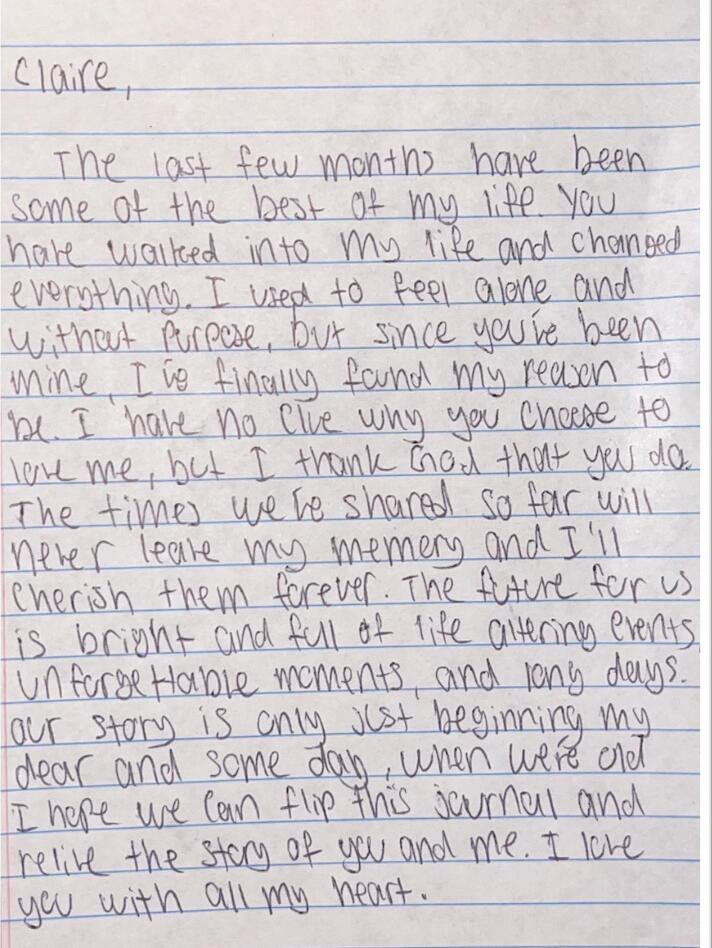 Claire,
The last few months have been
some of the best of my life. You
have walked into my life and changed
everything. I used to feel alone and
without purpose, but since you've been
mine, I've finally found my reason to
be. I have no clue why you choose to
love me, but I thank God that you do.
The times we've shared so far will
never leave my memory and I'll
cherish them forever. The future for us
is bright and full of life altering events,
unforgettable moments, and long days.
our story is only just beginning my
dear and some day, when we're old
I hope we can flip this journal and
relive the story of you and me. I love
you with all my heart.